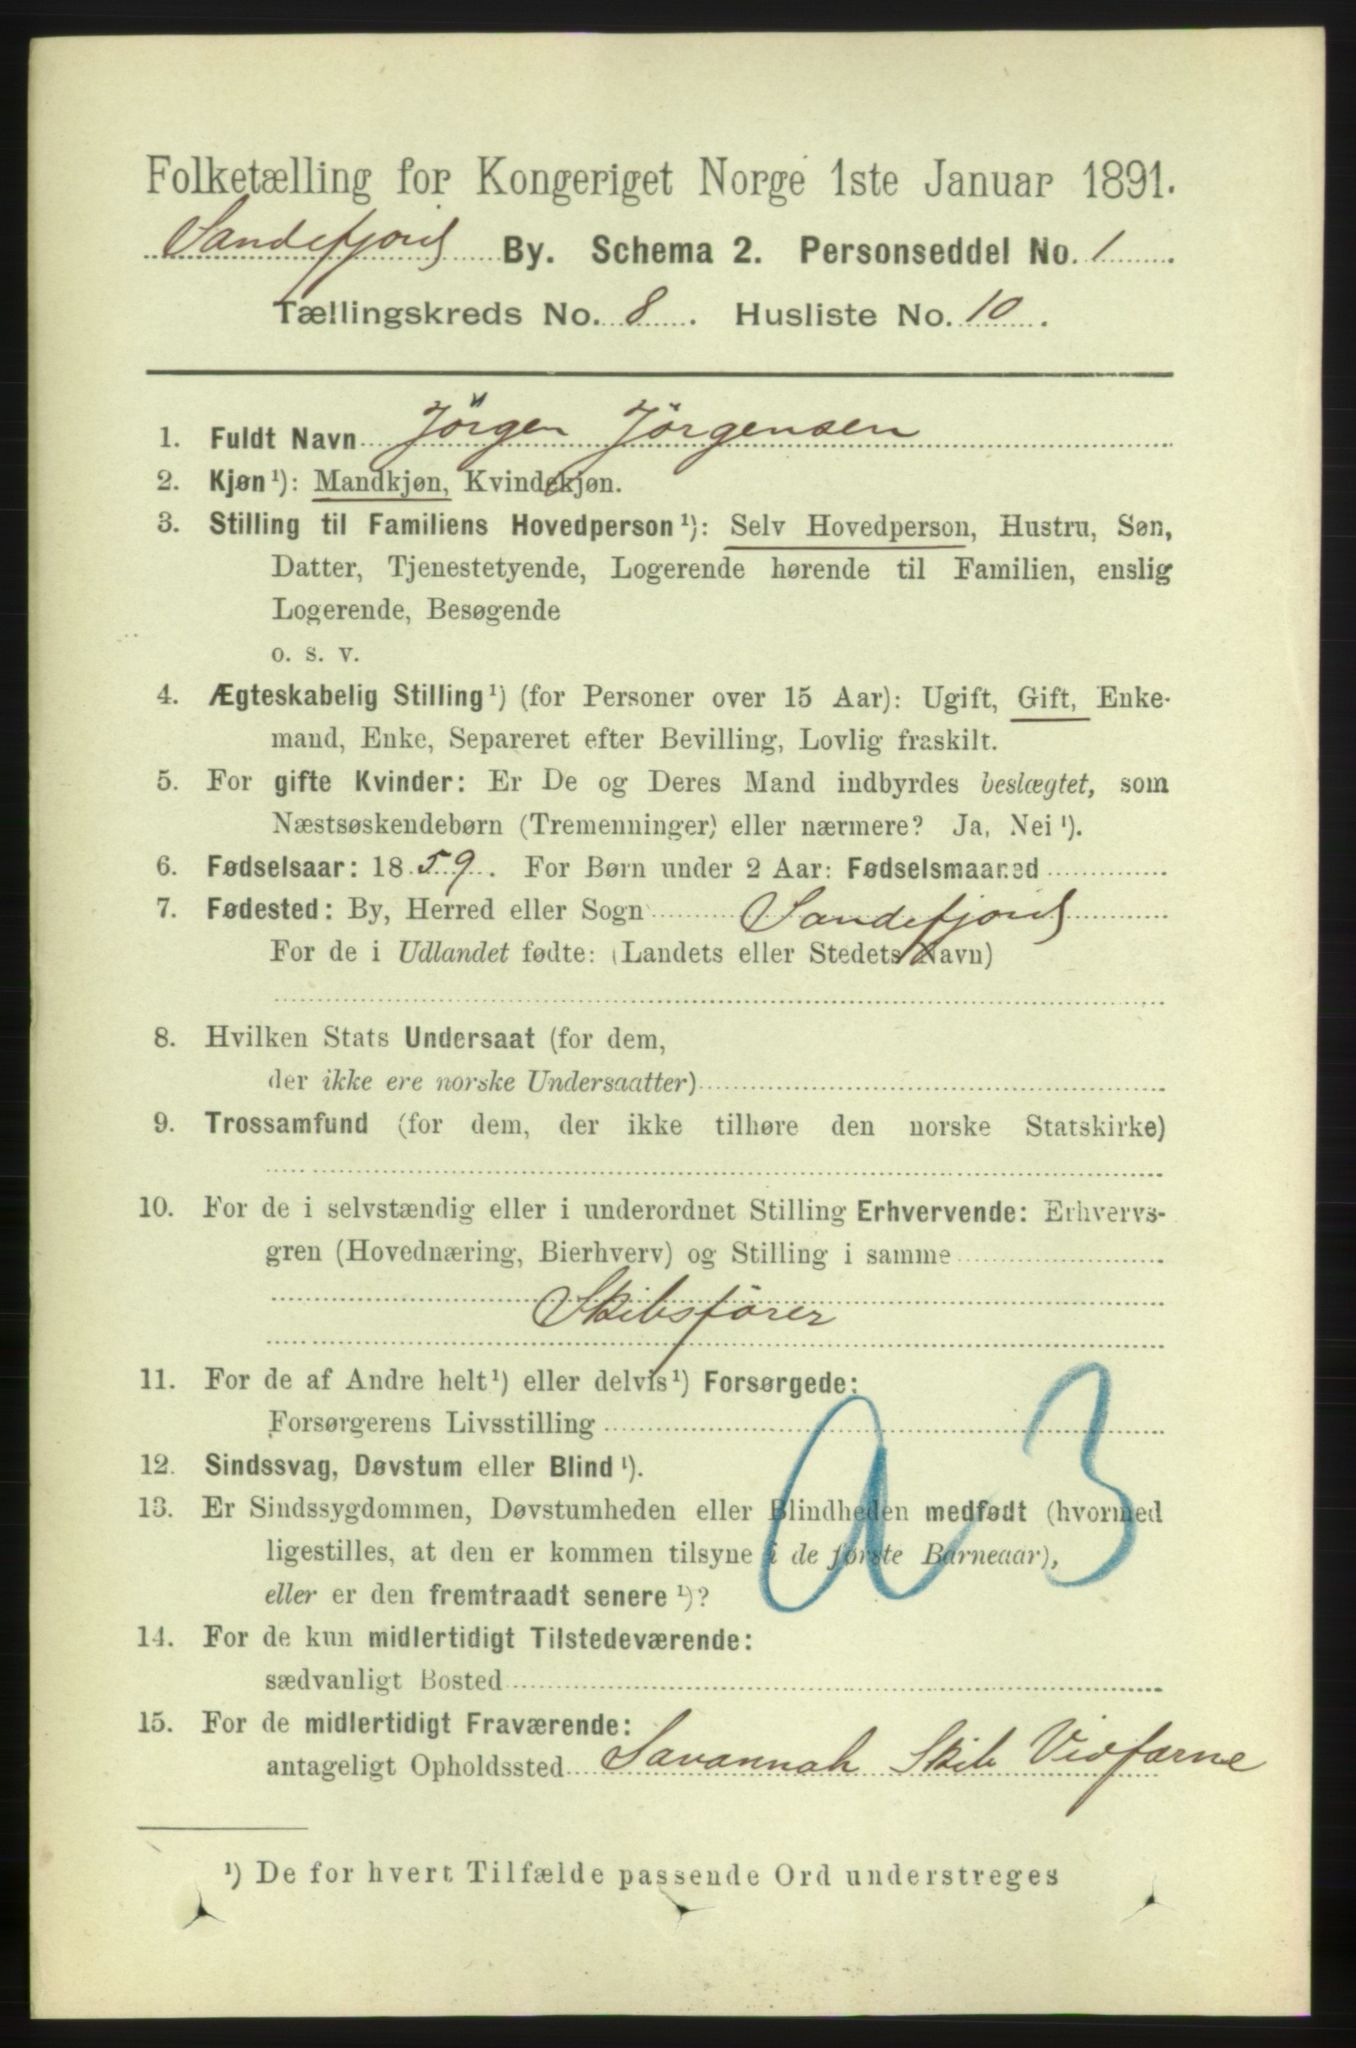 Folketælling for Kongeriget Norge 1ste Januar 1891.
Sandefjord By. Schema 2. Personseddel No. 1
Tællingskreds No. 8. Husliste No. 10.
1. Fuldt Navn Jörgen Jörgensen
2. Kjøn¹): Mandkjøn, Kvindekjøn.
3. Stilling til Familiens Hovedperson¹): Selv Hovedperson, Hustru, Søn,
Datter, Tjenestetyende, Logerende hørende til Familien, enslig
Logerende, Besøgende
o. s. v.
4. Ægteskabelig Stilling¹) (for Personer over 15 Aar): Ugift, Gift, Enke-
mand, Enke, Separeret efter Bevilling, Lovlig fraskilt.
5. For gifte Kvinder: Er De og Deres Mand indbyrdes beslægtet, som
Næstsøskendebørn (Tremenninger) eller nærmere? Ja, Nei¹).
6. Fødselsaar: 1859. For Børn under 2 Aar: Fødselsmaaned
7. Fødested: By, Herred eller Sogn Sandefjord
For de i Udlandet fødte: (Landets eller Stedets Navn)
8. Hvilken Stats Undersaat (for dem,
der ikke ere norske Undersaatter)
9. Trossamfund (for dem, der ikke tilhøre den norske Statskirke)
10. For de i selvstændig eller i underordnet Stilling Erhvervende: Erhvervs-
gren (Hovednæring, Bierhverv) og Stilling i samme
Skibsförer
11. For de af Andre helt¹) eller delvis¹) Forsørgede:
Forsørgerens Livsstilling
a 3
12. Sindssvag, Døvstum eller Blind¹).
13. Er Sindssygdommen, Døvstumheden eller Blindheden medfødt (hvormed
ligestilles, at den er kommen tilsyne i de første Barneaar),
eller er den fremtraadt senere¹)?
14. For de kun midlertidigt Tilstedeværende:
sædvanligt Bosted
15. For de midlertidigt Fraværende:
antageligt Opholdssted Savannah Skib Vidfarne
¹) De for hvert Tilfælde passende Ord understreges